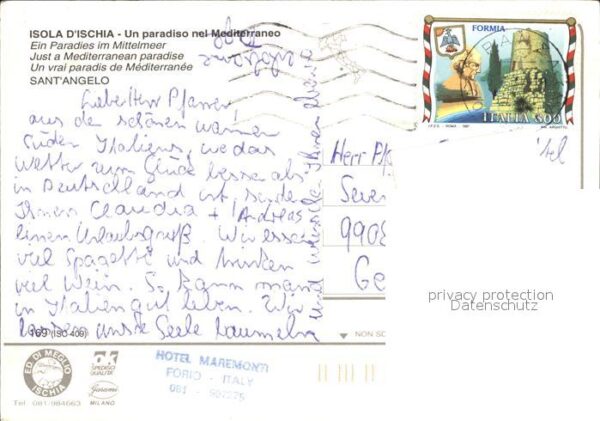 ISOLA D'ISCHIA - Un paradiso nel Mediterraneo
Ein Paradies im Mittelmeer
Just a Mediterranean paradise
Un vrai paradis de Méditerranée
SANT'ANGELO
Lieber Herr Pfarrer
aus dem schönen warmen
Süden Italiens, wo das
Wetter zum Glück besser als
in Deutschland ist, senden
Ihnen Claudia + Andreas
einen Urlaubsgruß. Wir essen
viel Spagetti und trinken
viel Wein. So kann man
in Italien gut leben. Wir
lassen unsre Seele baumeln
und wünschen Ihnen
FORMIA
ITALIA 800
I.P.Z.S. - ROMA
Herr Pfa
Seve
990
Ge
privacy protection
Datenschutz
169 (ISC 409)
NON SC
ED. DI MEGLIO
ISCHIA
Tel. 081-984663
OK
SPECIAL
QUALITÀ
MILANO
HOTEL MAREMONTI
FORIO - ITALY
081 -